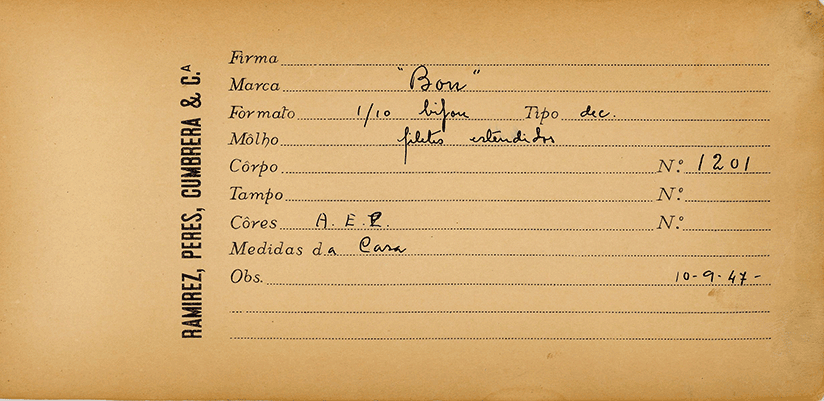 RAMIREZ, PERES, CUMBRERA & C.ᴬ
Firma
Marca "Bon"
Formato 1/10 bijou Tipo dec.
Môlho filetes estendidos
Côrpo N.º 1201
Tampo N.º
Côres A. E. N.º
Medidas da Casa
Obs. 10-9-47-